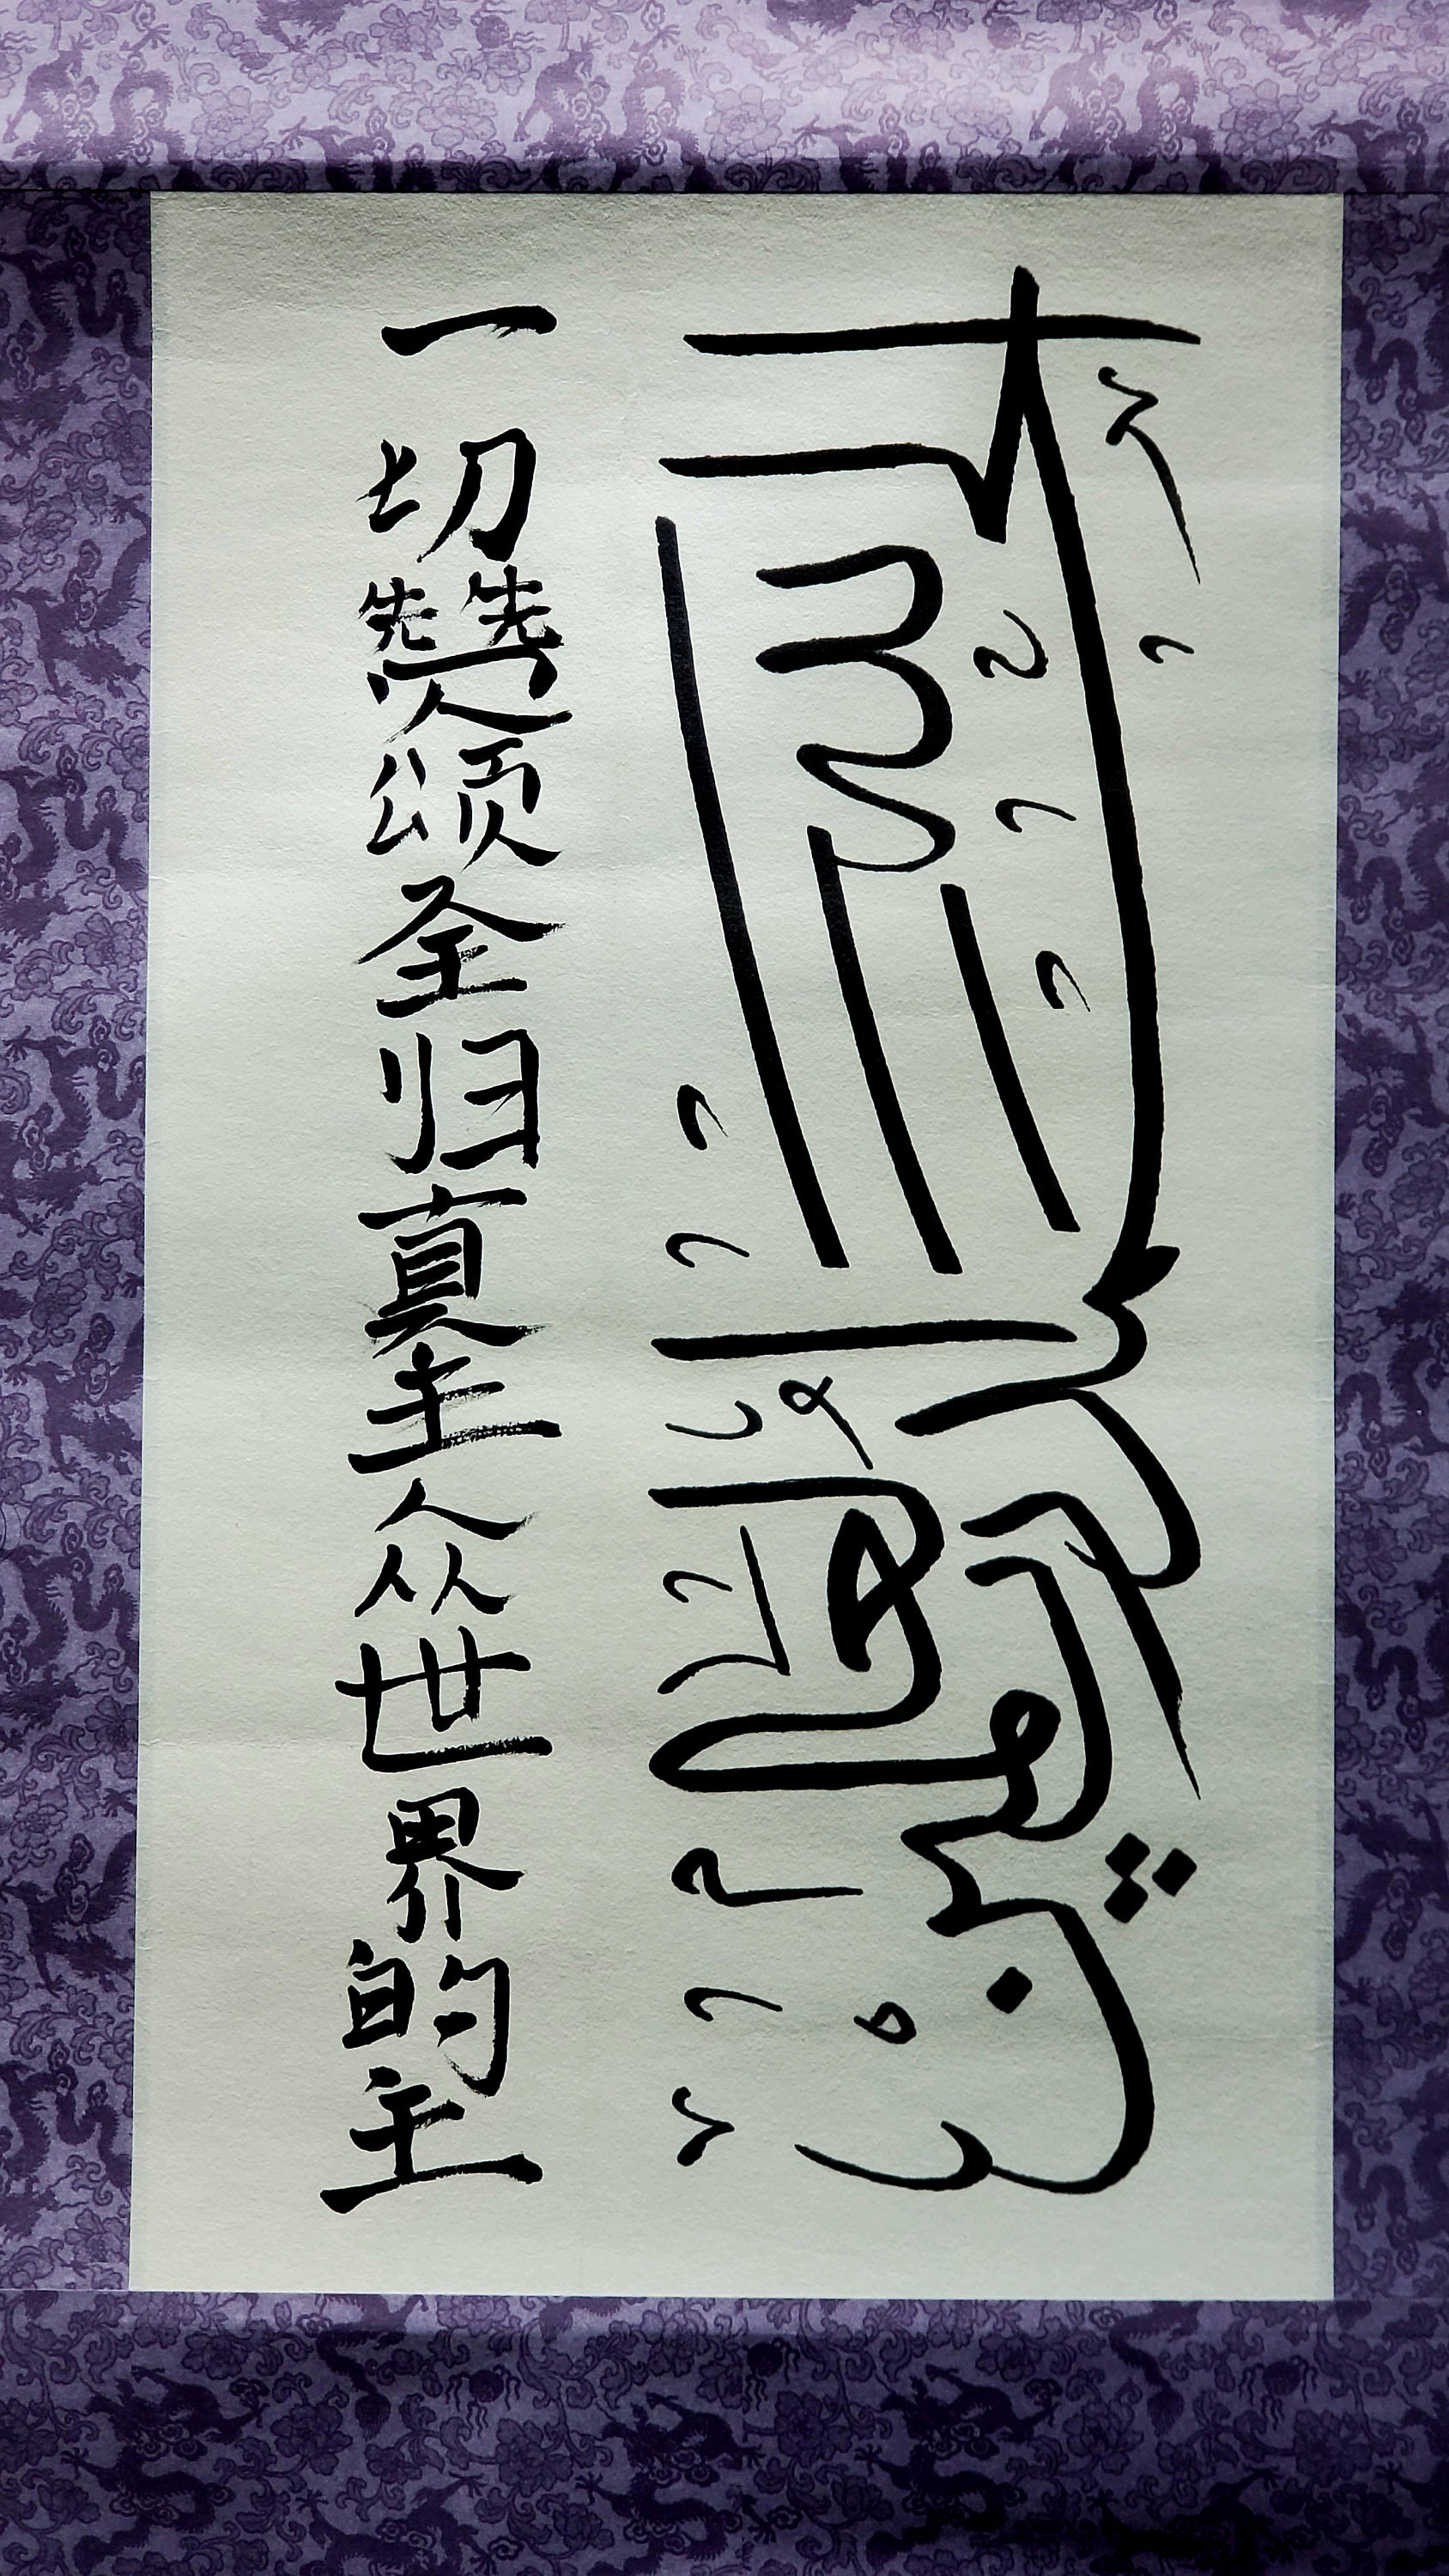 الحمد لله رب العالمين
一切赞颂全归真主众世界的主